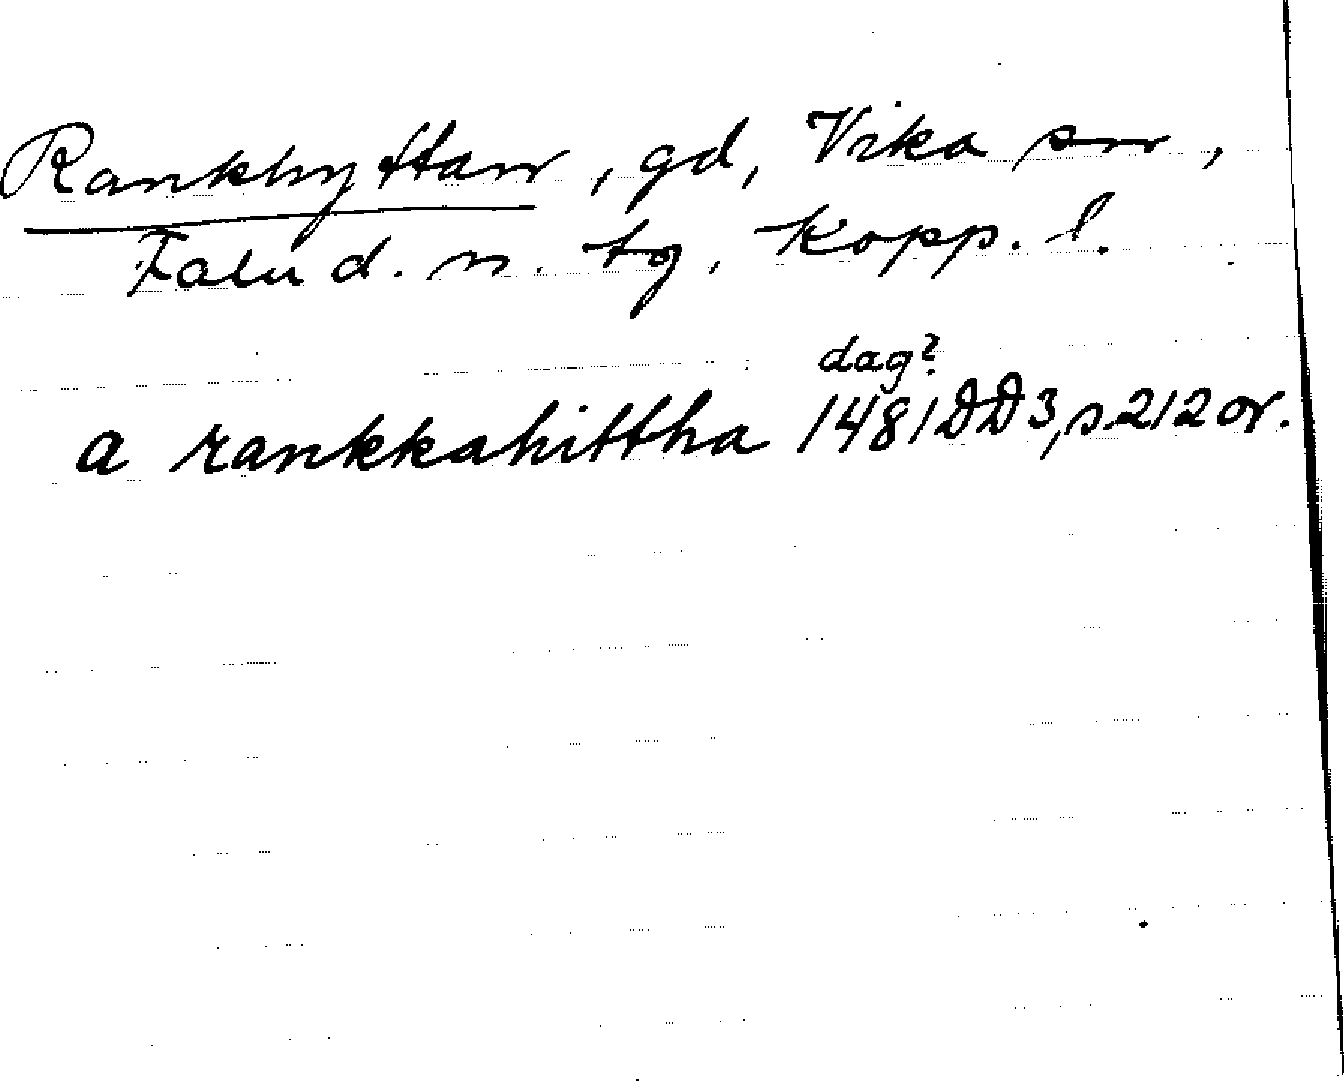 Rankhyttan, gd, Vika sn,
Falu d. n. tg, Kopp. l.
dag?
a rankkahittha 1481 DD 3, s. 212 or.